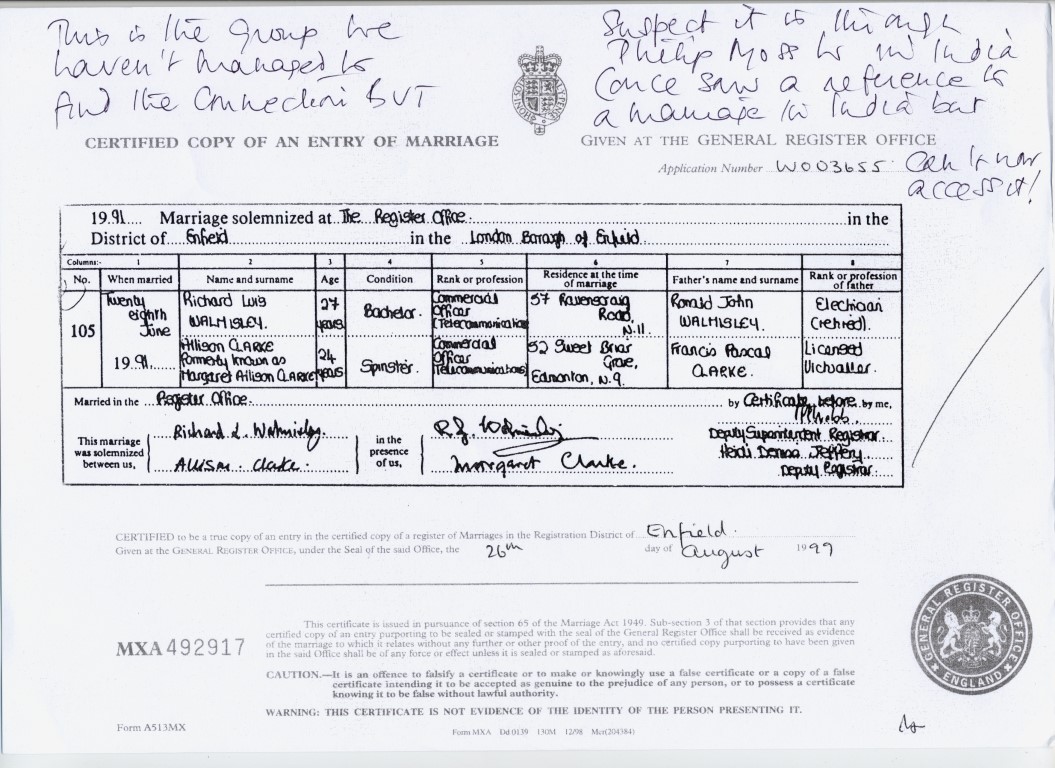 This is the Group we
haven't managed to
find the connection BUT
Suspect it is through
Philip Moss in India
(once saw a reference to
a marriage in India but
can't now
access it!
CERTIFIED COPY OF AN ENTRY OF MARRIAGE
GIVEN AT THE GENERAL REGISTER OFFICE
Application Number W003655
1991 Marriage solemnized at The Register Office in the
District of Enfield in the London Borough of Enfield
Columns:- 1 2 3 4 5 6 7 8
No. When married Name and surname Age Condition Rank or profession Residence at the time of marriage Father's name and surname Rank or profession of father
105 Twenty eighth June 1991 Richard Luis WALMISLEY. 27 years Bachelor. Commercial Officer (Telecommunications) 57 Ravenscraig Road, N.11. Ronald John WALMISLEY. Electrician (retired).
Allison CLARKE formerly known as Margaret Allison CLARKE 24 years Spinster. Commercial Officer (Telecommunications) 52 Sweet Briar Grove, Edmonton, N.9. Francis Pascal CLARKE. Licensed Victualler.
Married in the Register Office. by Certificate before by me,
This marriage was solemnized between us, Richard L. Walmisley.
Allison Clarke.
in the presence of us, R.J. Walmisley
Margaret Clarke.
Deputy Superintendent Registrar
Heidi Donna Jeffery
Deputy Registrar
CERTIFIED to be a true copy of an entry in the certified copy of a register of Marriages in the Registration District of Enfield.
Given at the GENERAL REGISTER OFFICE, under the Seal of the said Office, the 26th day of August 1999
MXA 492917
This certificate is issued in pursuance of section 65 of the Marriage Act 1949. Sub-section 3 of that section provides that any
certified copy of an entry purporting to be sealed or stamped with the seal of the General Register Office shall be received as evidence
of the marriage to which it relates without any further or other proof of the entry, and no certified copy purporting to have been given
in the said Office shall be of any force or effect unless it is sealed or stamped as aforesaid.
CAUTION.—It is an offence to falsify a certificate or to make or knowingly use a false certificate or a copy of a false
certificate intending it to be accepted as genuine to the prejudice of any person, or to possess a certificate
knowing it to be false without lawful authority.
WARNING: THIS CERTIFICATE IS NOT EVIDENCE OF THE IDENTITY OF THE PERSON PRESENTING IT.
GENERAL REGISTER OFFICE
ENGLAND
Form A513MX
Form MXA Dd 0139 130M 12/98 Mcr(204384)